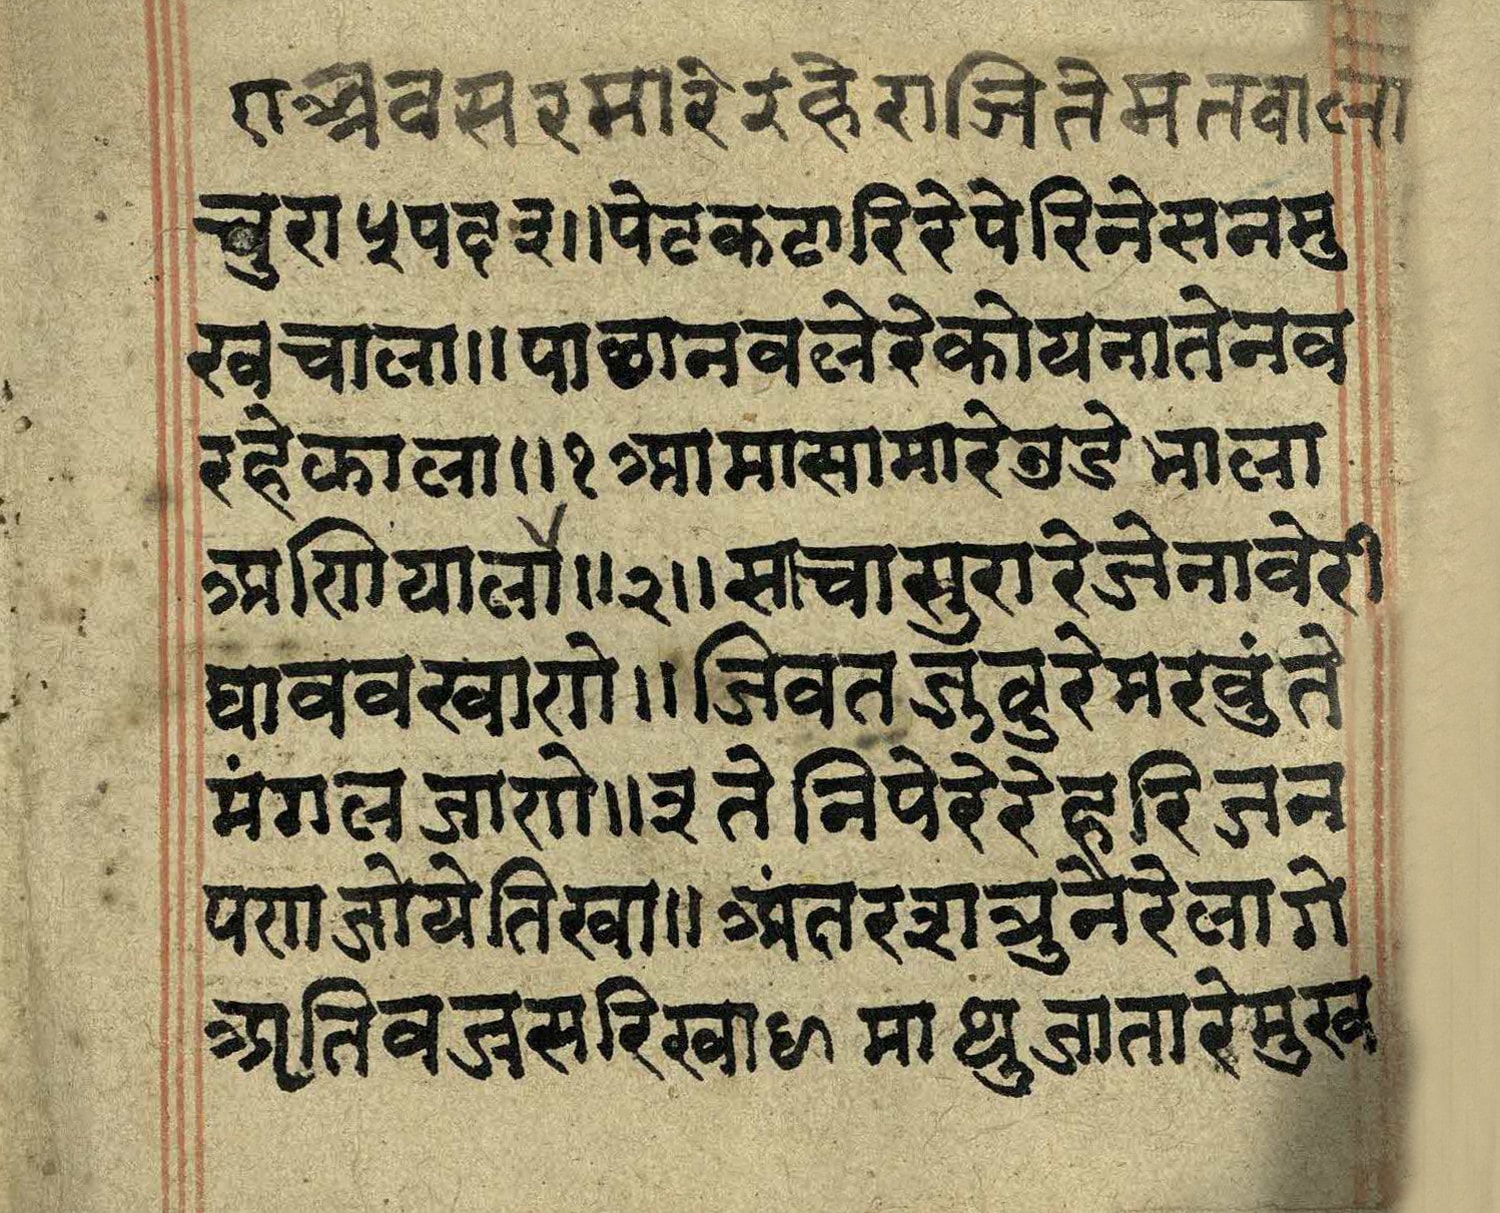 ण अवसर मारे रहे राजि ते मतवाला
चुरा ५ पद ३॥ पेट कटारि रे पेरि ने सनमु
ख चाला॥ पाछा न वले रे कोय ना ते नव
रहे काला॥ १ आमासामा रे उडे भाला
अणियाला॥ २॥ साचा सुरा रे जेना वेरी
घाव वखाणे॥ जिवत जुवु रे मरवुं ते
मंगल जाणे॥ ३ ते नि पेरे रे हरिजन
पण जोये तिखा॥ अंतर शत्रु ने रे लागे
अति वज्र सरिखा ४ माथु जाता रे मुख